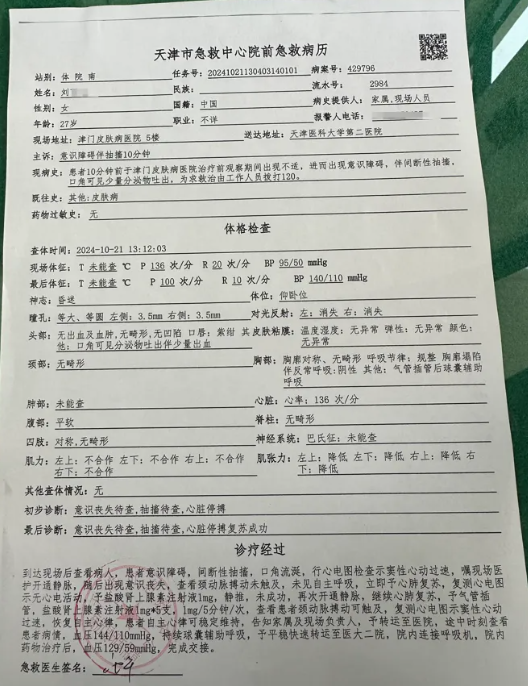 天津市急救中心院前急救病历
站别：体院南 任务号：20241021130403140101 病案号：429796
姓名：刘 民族： 流水号：2984
性别：女 国籍：中国 病史提供人：家属,现场人员
年龄：27岁 职业：不详 报警人电话：
现场地址：津门皮肤病医院 5楼 送达地址：天津医科大学第二医院
主诉：意识障碍伴抽搐10分钟
现病史：患者10分钟前于津门皮肤病医院治疗前观察期间出现不适，进而出现意识障碍，伴间断性抽搐，
口角可见少量分泌物吐出，为求救治由工作人员拨打120。
既往史：其他:皮肤病
药物过敏史：无
体格检查
查体时间：2024-10-21 13:12:03
现场体征：T 未能查 ℃ P 136 次/分 R 20 次/分 BP 95/50 mmHg
最后体征：T 未能查 ℃ P 100 次/分 R 10 次/分 BP 140/110 mmHg
神态：昏迷 体位：仰卧位
瞳孔：等大、等圆 左侧：3.5mm 右侧：3.5mm 对光反射：左；消失 右；消失
头部：无出血及血肿,无畸形,无凹陷 口唇；紫绀 其
他；口角可见分泌物吐出伴少量出血
皮肤粘膜：温度湿度；无异常 弹性；无异常 颜色；
无异常
颈部：无畸形
胸部：胸廓对称、无畸形 呼吸节律；规整 胸廓塌陷
伴反常呼吸;阴性 其他；气管插管后球囊辅助
呼吸
肺部：未能查 心脏：心率；136 次/分
腹部：平软 脊柱：无畸形
四肢：对称,无畸形 神经系统：巴氏征；未能查
肌力：左上；不合作 左下；不合作 右上；不合作
右下；不合作
肌张力：左上；降低 左下；降低 右上；降低 右
下；降低
其他查体情况：无
初步诊断：意识丧失待查,抽搐待查,心脏停搏
最后诊断：意识丧失待查,抽搐待查,心脏停搏复苏成功
诊疗经过
到达现场后查看病人，患者意识障碍，间断抽搐，口角流涎，行心电图检查示窦性心动过速，嘱现场医
护开通静脉，随后出现意识丧失，查看颈动脉搏动未触及，未见自主呼吸，立即予心肺复苏，复测心电图
示无心电活动，予盐酸肾上腺素注射液1mg，静推，未成功，再次开通静脉，继续心肺复苏，予气管插
管，盐酸肾上腺素注射液1mg*5支，1mg/5分钟/次，查看患者颈动脉搏动可触及，复测心电图示窦性心动
过速，恢复自主心律，患者自主心律可稳定维持，告知家属及现场负责人，予转运至医院，途中时刻查看
患者病情，血压144/110mmHg，持续球囊辅助呼吸，予平稳快速转运至医大二院，院内连接呼吸机，院内
药物治疗后，血压129/59mmHg，完成交接。
急救医生签名：